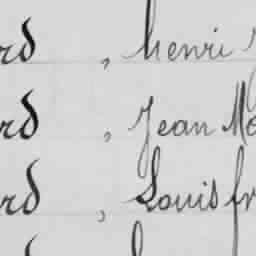 rd , henri
rd , Jean Ma
rd , Louis fr